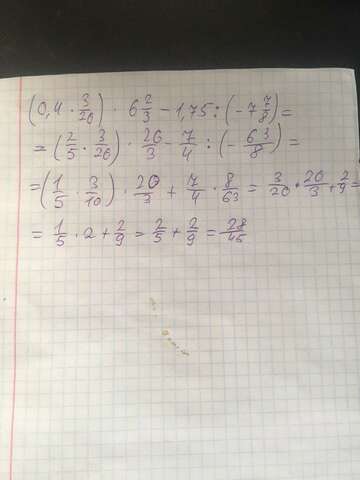 (0,4 · 3/20) · 6 2/3 - 1,75 : (-7 7/8) =
= (2/5 · 3/20) · 20/3 - 7/4 : (-63/8) =
= (1/5 · 3/10) · 20/3 + 7/4 · 8/63 = 3/20 · 20/3 + 2/9 =
= 1/5 · 2 + 2/9 = 2/5 + 2/9 = 28/45